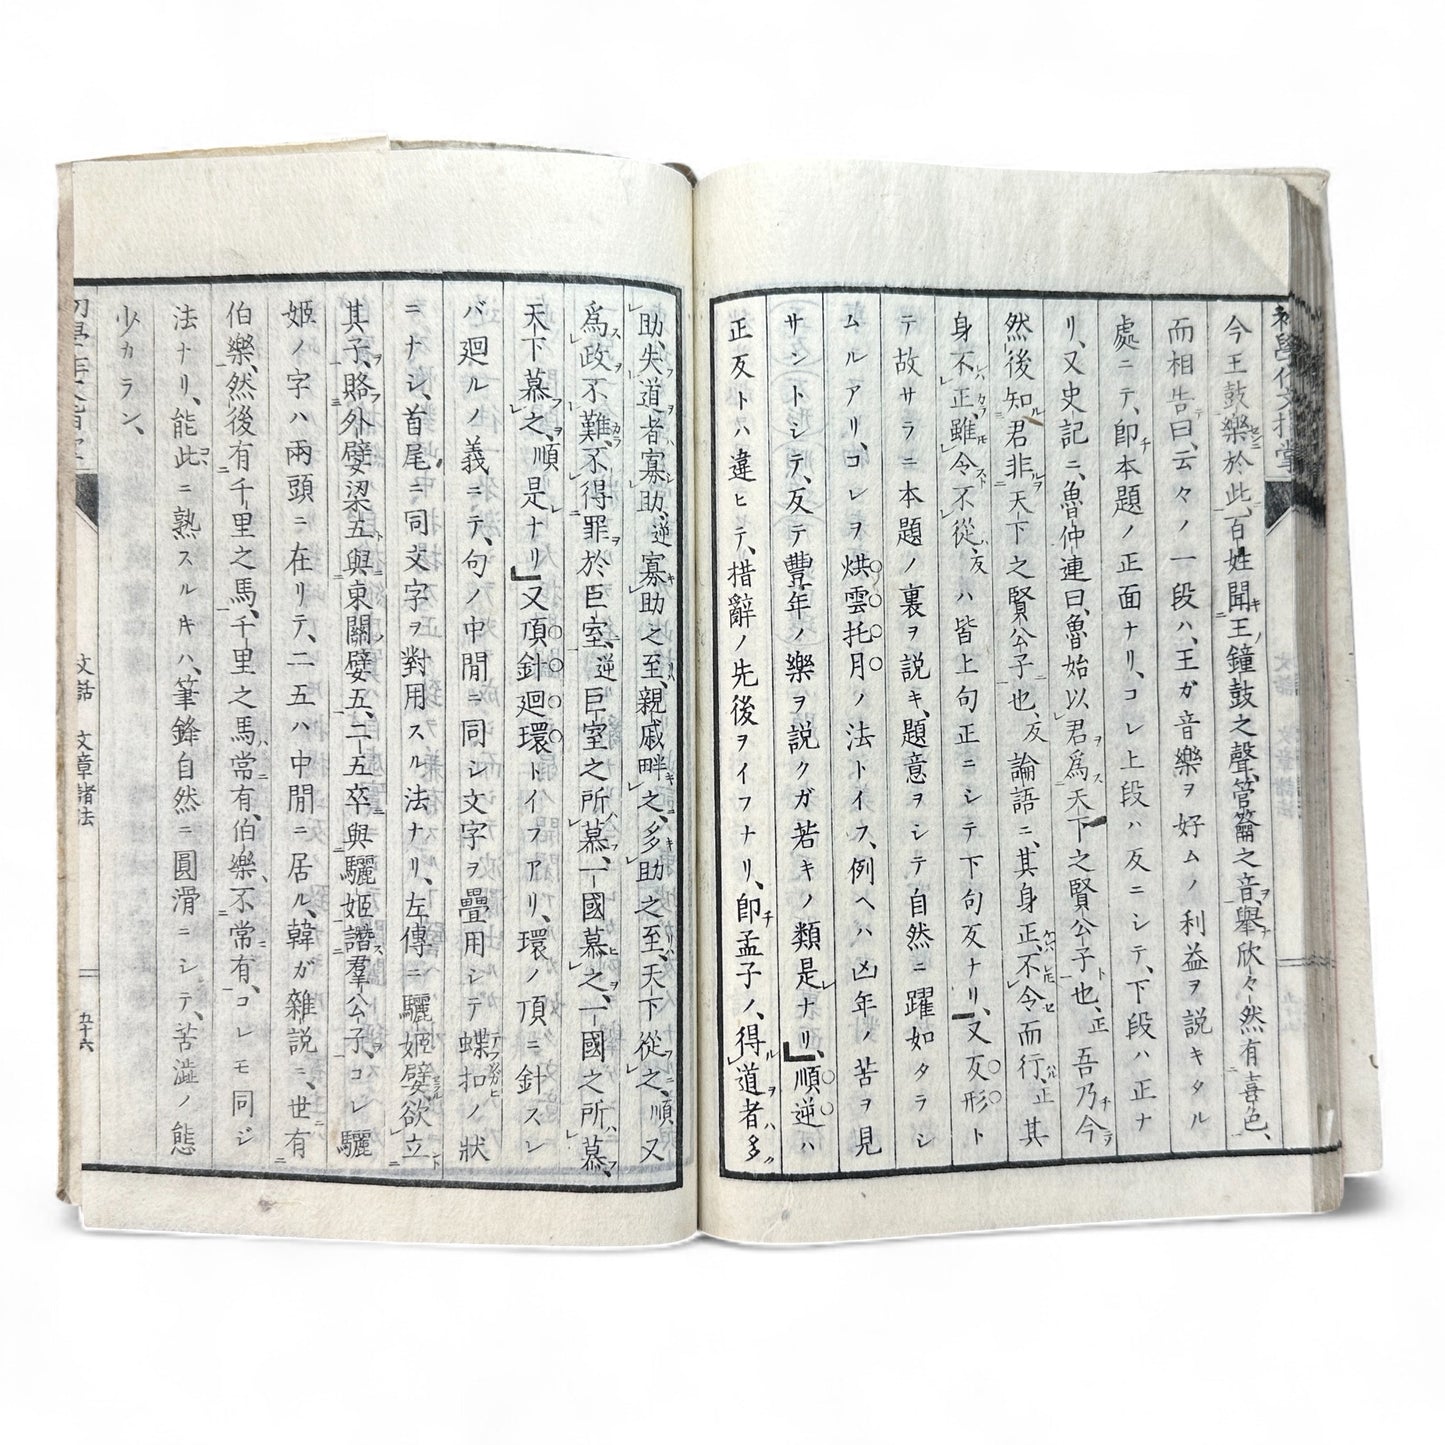 今王鼓樂於此、百姓聞王鐘鼓之聲、管籥之音、擧欣々然有喜色、
而相告曰、云々ノ一段ハ、王ガ音樂ヲ好ムノ利益ヲ説キタル
處ニテ、卽本題ノ正面ナリ、コレ上段ハ反ニシテ、下段ハ正ナ
リ、又史記ニ、魯仲連曰、魯始以君爲天下之賢公子也、正吾乃今
然後知君非天下之賢公子也、反論語ニ、其身正、不令而行、正其
身不正、雖令不從、反ハ皆上句正ニシテ下句反ナリ、又反形ト
テ故サラニ本題ノ裏ヲ説キ、題意ヲシテ自然ニ躍如タラシ
ムルアリ、コレヲ烘雲托月ノ法トイフ、例ヘハ凶年ノ苦ヲ見
サントシテ、反テ豐年ノ樂ヲ説クガ若キノ類是ナリ、順逆ハ
正反トハ違ヒテ、措辭ノ先後ヲイフナリ、卽孟子ノ、得道者多
助、失道者寡助、逆寡助之至、親戚畔之、多助之至、天下從之、順又
爲政不難、不得罪於巨室、逆巨室之所慕、一國慕之、一國之所慕、
天下慕之、順是ナリ」又頂針廻環トイフアリ、環ノ頂ニ針スレ
バ廻ルノ義ニテ、句ノ中間ニ同シ文字ヲ疊用シテ蝶扣ノ狀
ニナシ、首尾ニ同文字ヲ對用スル法ナリ、左傳ニ驪姬嬖、欲立
其子、賂外嬖梁五、與東關嬖五、二五卒與驪姬譖羣公子、コレ驪
姬ノ字ハ兩頭ニ在リテ、二五ハ中間ニ居ル、韓ガ雜説ニ、世有
伯樂、然後有千里之馬、千里之馬常有、伯樂不常有、コレモ同ジ
法ナリ、能此ニ熟スルキハ、筆鋒自然ニ圓滑ニシテ、苦澁ノ態
少カラン、
文話 文章諸法
五十六